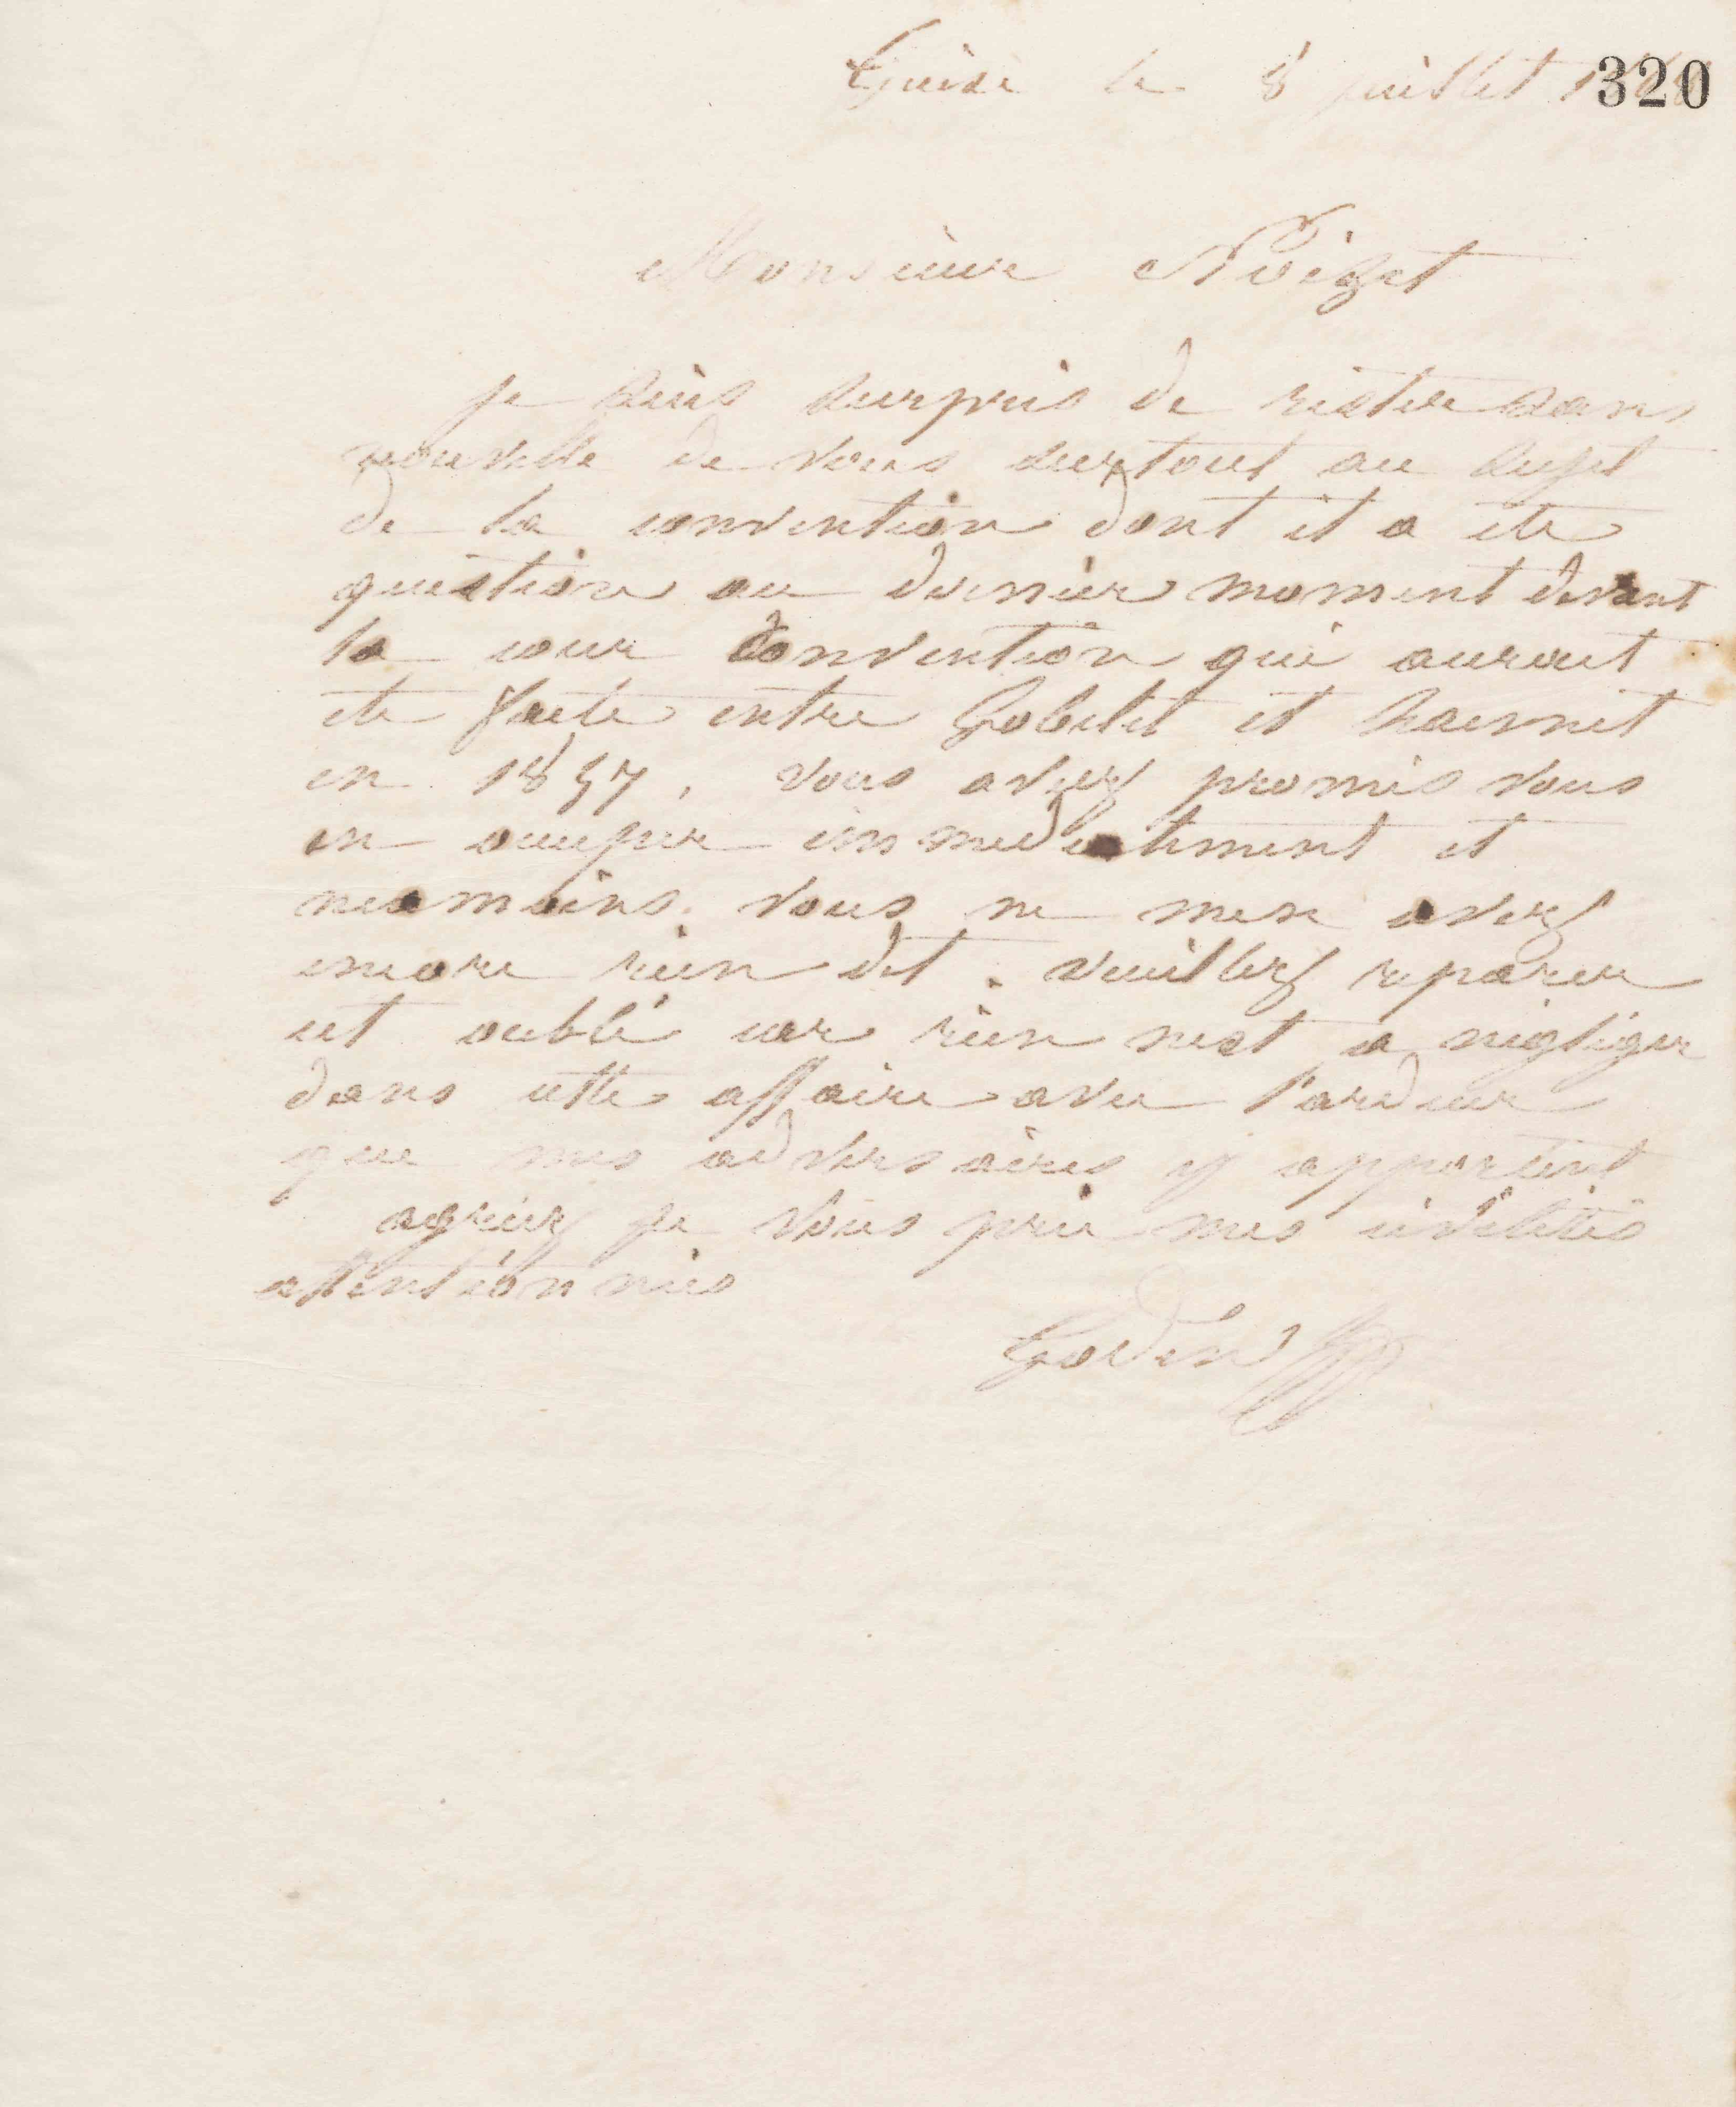 Guise le 8 juillet 320
Monsieur Noizet
je suis surpris de rester sans
nouvelle de vous surtout au sujet
de la convention dont il a ete
question au dernier moment devant
la cour convention qui aurait
ete faite entre Gobelet et
en 1857, vous aviez promis vous
en occuper immediatement et
neamoins vous ne men avez
encore rien dit. veuillez reparer
cet oubli car rien nest a negliger
dans cette affaire avec l'ardeur
que mes adversaires y apportent
agreez je vous prie mes civilités
attentionnées
Godin